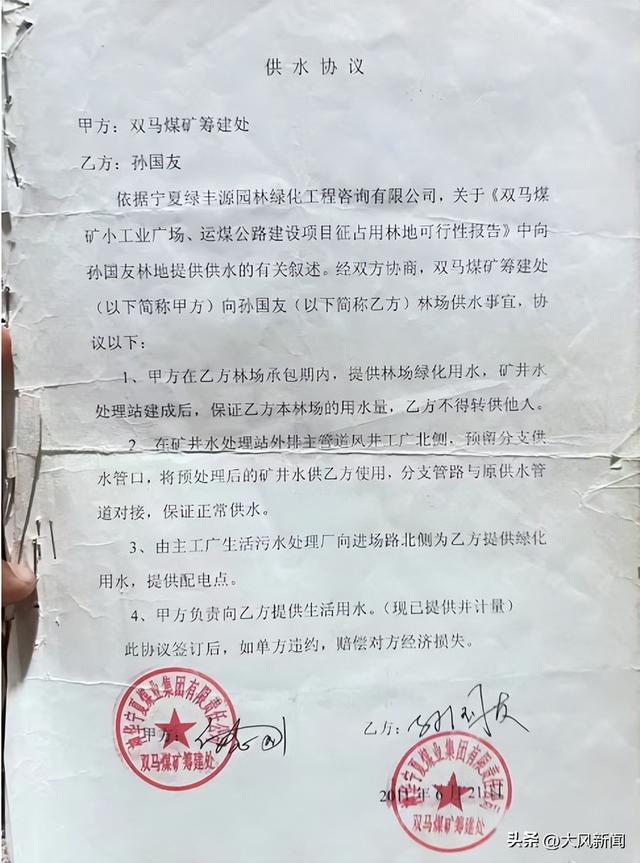 供水协议
甲方：双马煤矿筹建处
乙方：孙国友
依据宁夏绿丰源园林绿化工程咨询有限公司，关于《双马煤
矿小工业广场、运煤公路建设项目征占用林地可行性报告》中向
孙国友林地提供供水的有关叙述。经双方协商，双马煤矿筹建处
（以下简称甲方）向孙国友（以下简称乙方）林场供水事宜，协
议以下：
1、甲方在乙方林场承包期内，提供林场绿化用水，矿井水
处理站建成后，保证乙方本林场的用水量，乙方不得转供他人。
2、在矿井水处理站外排主管道风井工广北侧，预留分支供
水管口，将预处理后的矿井水供乙方使用，分支管路与原供水管
道对接，保证正常供水。
3、由主工广生活污水处理厂向进场路北侧为乙方提供绿化
用水，提供配电点。
4、甲方负责向乙方提供生活用水。（现已提供并计量）
此协议签订后，如单方违约，赔偿对方经济损失。
甲方：
乙方：孙国友
神华宁夏煤业集团有限责任公司
双马煤矿筹建处
2011年6月21日
神华宁夏煤业集团有限责任公司
双马煤矿筹建处
头条 @大风新闻